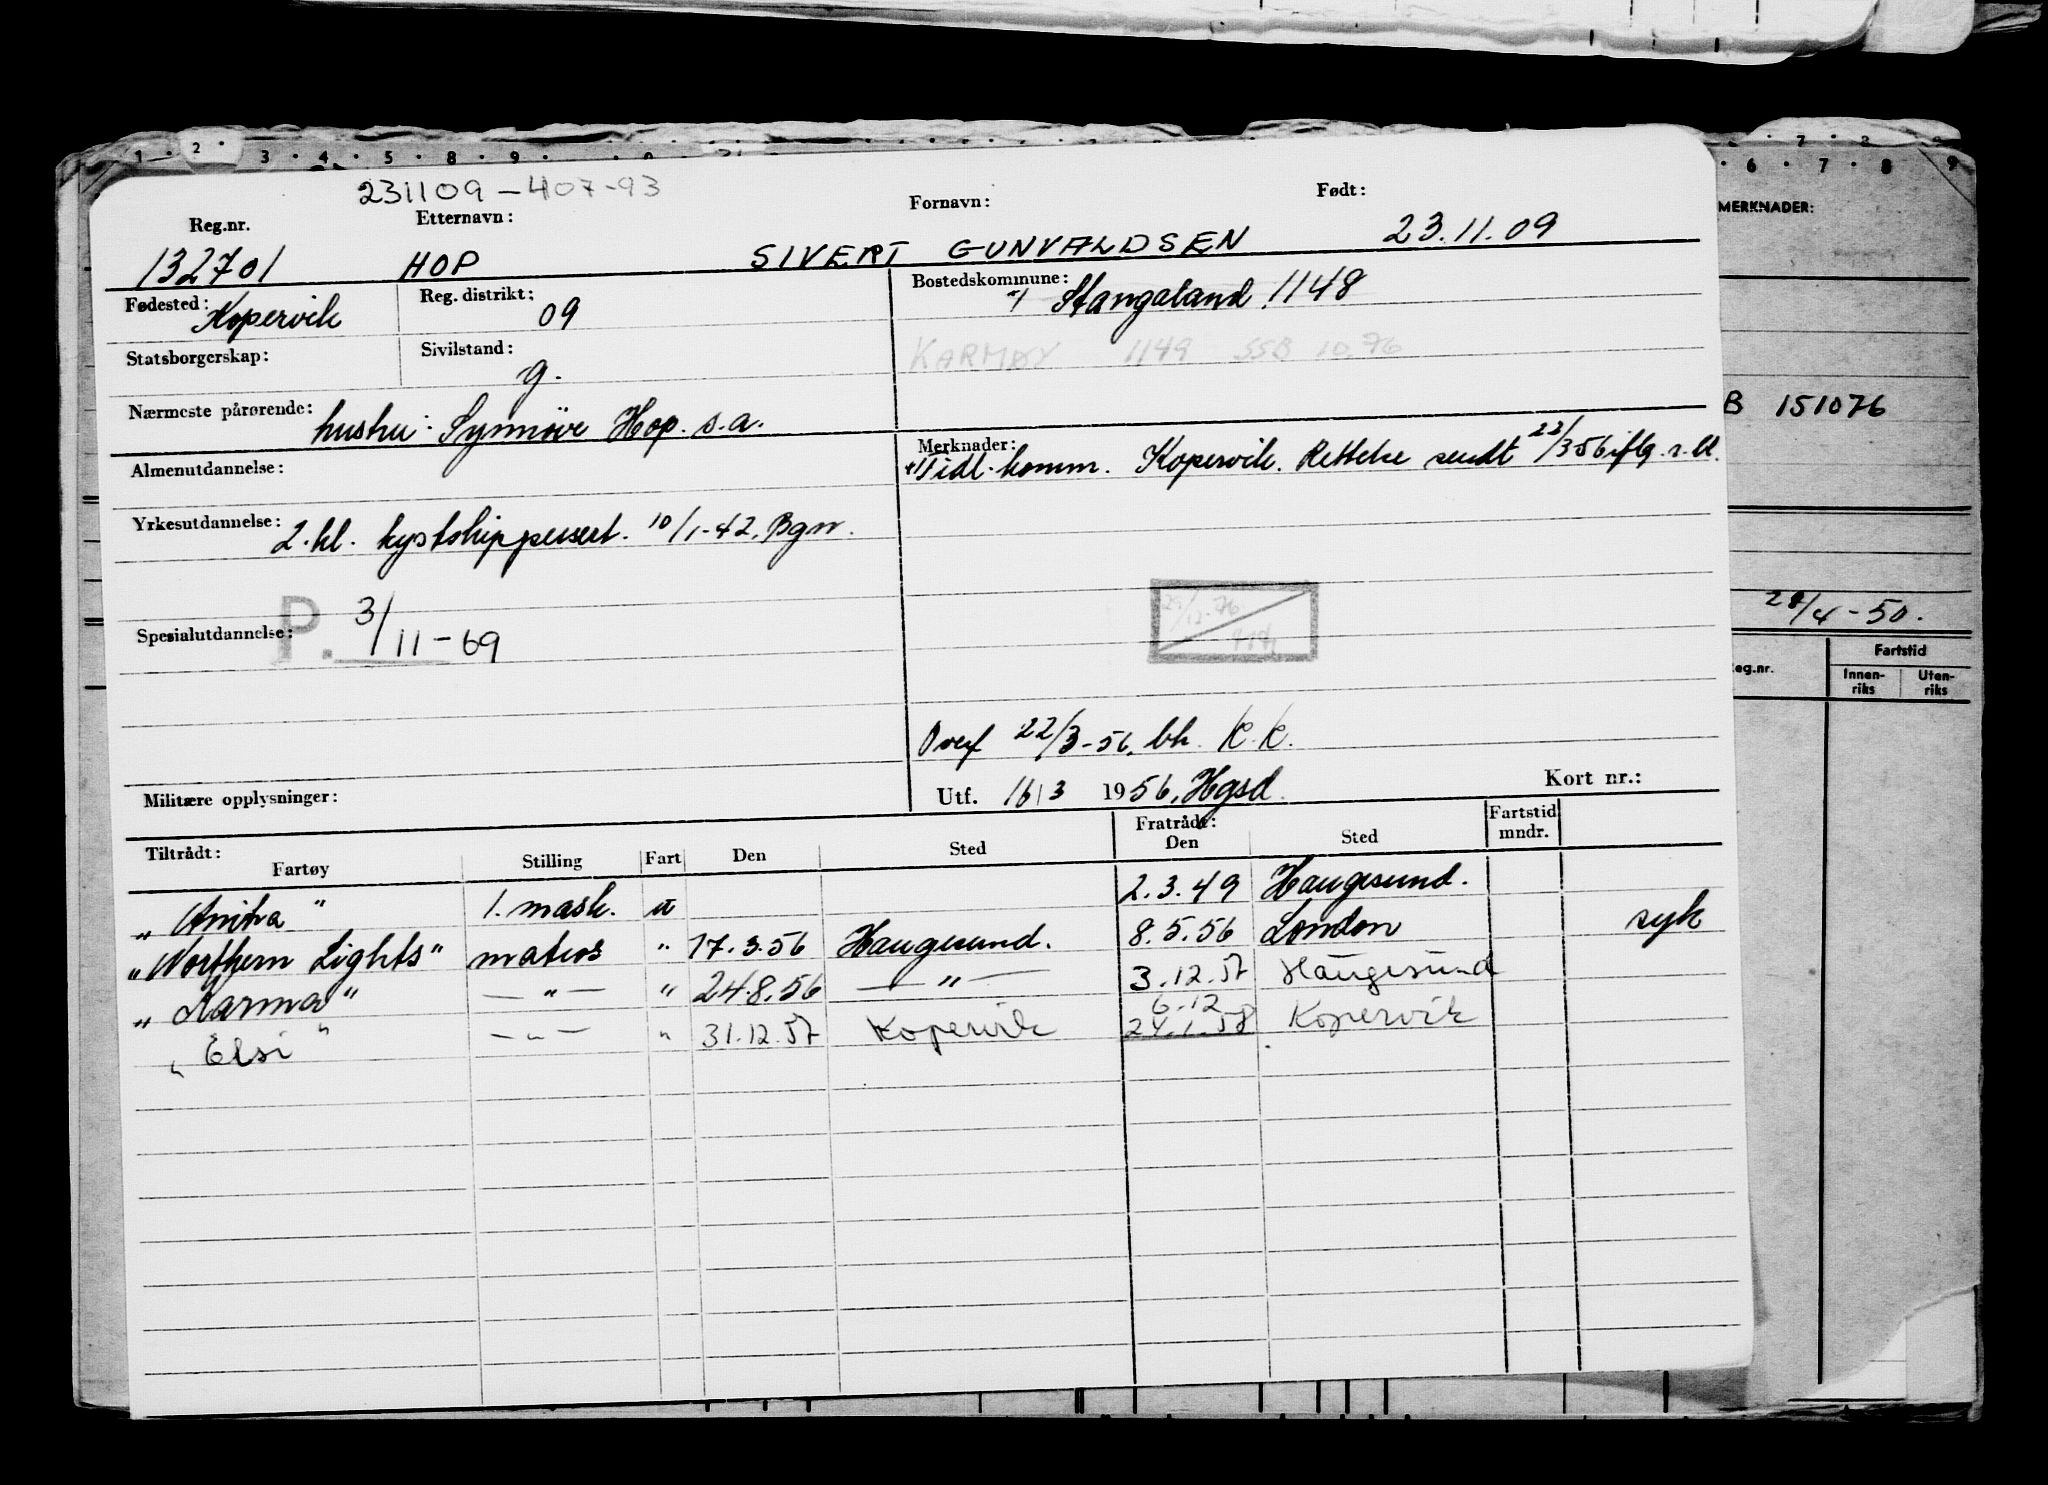 1 · 2 · 3 · 4 · 5 · 8 · 9 ·
6 · 7 · 8 9
231109-407-93
Reg.nr. Etternavn: Fornavn: Født:
132701 HOP SIVERT GUNVALDSEN 23.11.09
MERKNADER:
Fødested: Kopervik Reg. distrikt: 09 Bostedskommune: Stangaland 1148
Statsborgerskap: Sivilstand: g. KARMØY 1149 SSB 10.76
Nærmeste pårørende: hustru: Synnöve Hop. s.a.
B 151076
Almenutdannelse: Merknader: Tidl. komm. Kopervik. Rettelse sendt 22/3 56 iflg. r.bl.
Yrkesutdannelse: 2. kl. kystskippersert. 10/1-42. Bgn.
Spesialutdannelse: P. 3/11-69
28/4-50.
Overf 22/3-56. bh. K.K.
Militære opplysninger: Utf. 16/3 1956, Hgsd. Kort nr.:
eg.nr. Fartstid
Innen-riks Uten-riks
Tiltrådt: Fratrådt: Fartstid mndr.
Fartøy Stilling Fart Den Sted Den Sted
„Anitra" 1. mask. u 2.3.49 Haugesund.
„Northern Lights" matros " 17.3.56 Haugesund. 8.5.56 London syk
„Karma" — " — " 24.8.56 — " — 3.12.57 Haugesund
6.12
„Elsi" — " — " 31.12.57 Kopervik 24.1.58 Kopervik